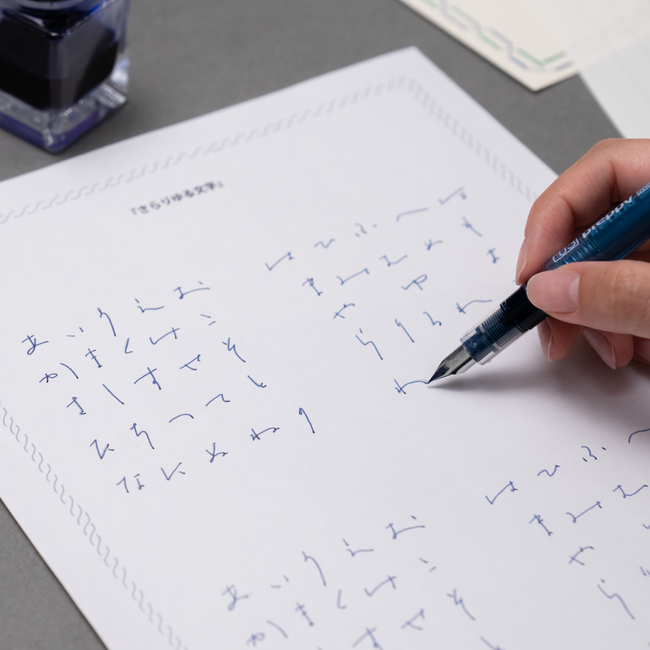 『さらりゆる文字』
あいうえお
かきくけこ
さしすせそ
たちつてと
なにぬねの
はひふへほ
まみむめも
やゆよ
らりるれ
わ
あいうえお
かきくけこ
はひふへ
まみむ
や
preppy